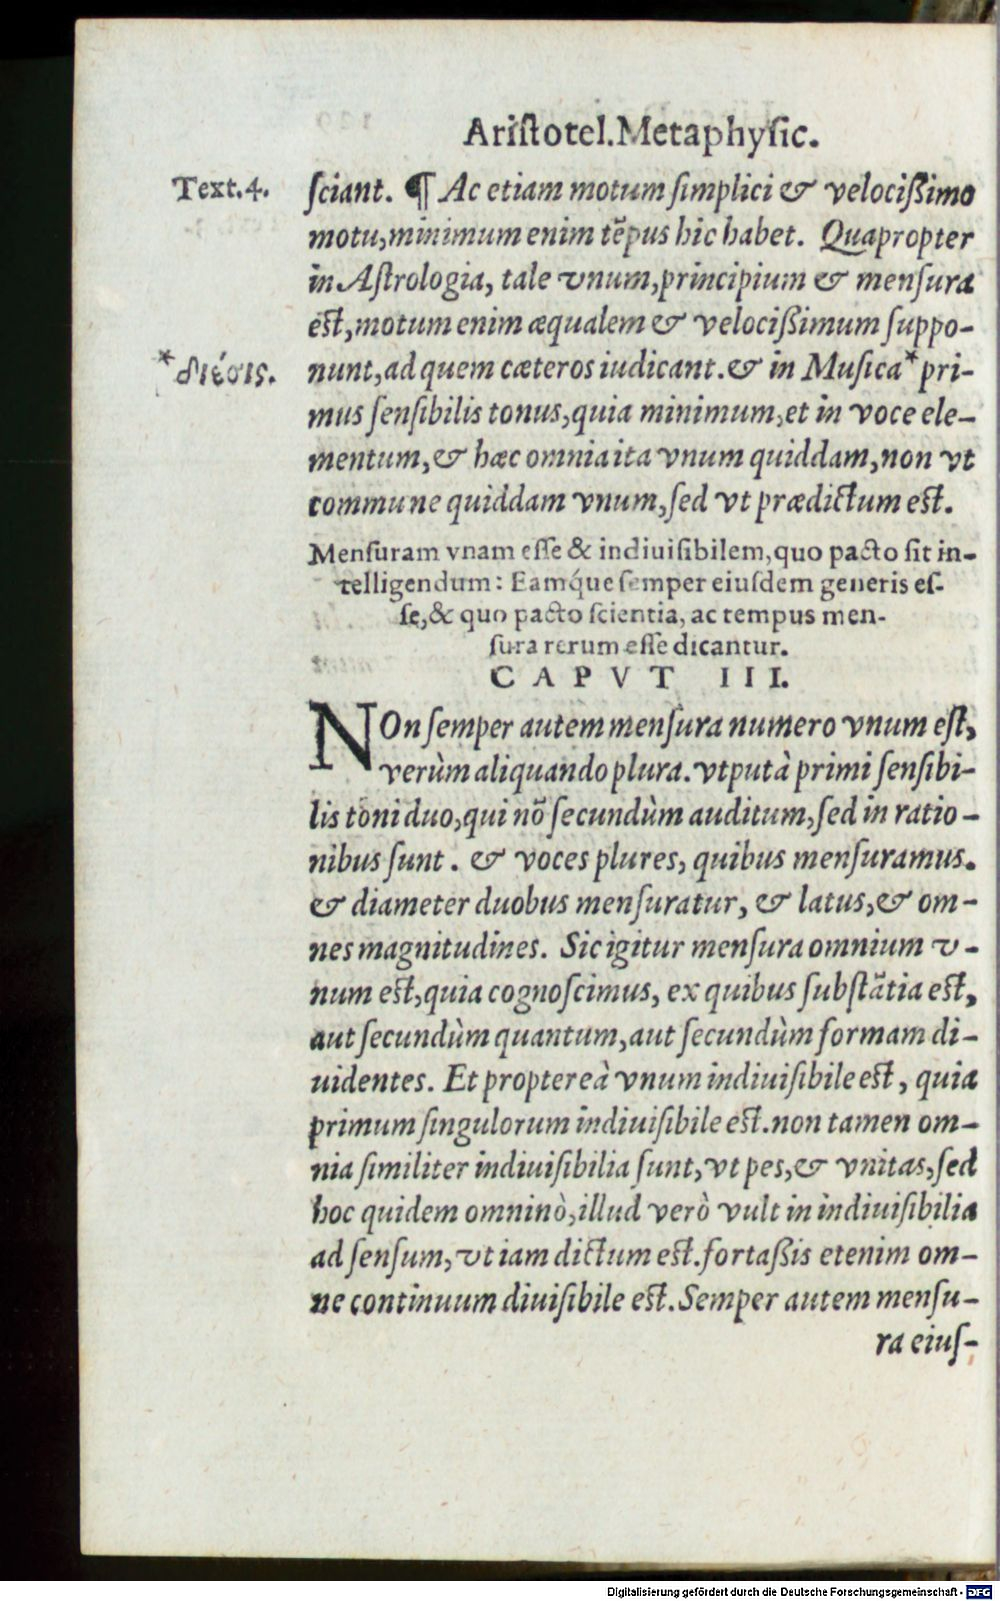 Aristotel.Metaphysic.
Text.4. ſciant. ¶ Ac etiam motum ſimplici & velocißimo
motu,minimum enim tẽpus hic habet. Quapropter
in Aſtrologia, tale vnum,principium & menſura
eſt,motum enim æqualem & velocißimum ſuppo-
*διέσις. nunt,ad quem cæteros iudicant.& in Muſica*pri-
mus ſenſibilis tonus,quia minimum,et in voce ele-
mentum,& hæc omnia ita vnum quiddam,non vt
commune quiddam vnum,ſed vt prædictum eſt.
Menſuram vnam eſſe & indiuiſibilem,quo pacto ſit in-
telligendum: Eamq́ue ſemper eiuſdem generis eſ-
ſe,& quo pacto ſcientia, ac tempus men-
ſura rerum eſſe dicantur.
CAPVT III.
NOn ſemper autem menſura numero vnum eſt,
verùm aliquando plura. vtputà primi ſenſibi-
lis toni duo,qui nõ ſecundùm auditum,ſed in ratio-
nibus ſunt. & voces plures, quibus menſuramus.
& diameter duobus menſuratur, & latus,& om-
nes magnitudines. Sic igitur menſura omnium v-
num eſt,quia cognoſcimus, ex quibus ſubſtãtia eſt,
aut ſecundùm quantum,aut ſecundùm formam di-
uidentes. Et proptereà vnum indiuiſibile eſt, quia
primum ſingulorum indiuiſibile eſt.non tamen om-
nia ſimiliter indiuiſibilia ſunt,vt pes,& vnitas,ſed
hoc quidem omninò,illud verò vult in indiuiſibilia
ad ſenſum,vt iam dictum eſt.fortaßis etenim om-
ne continuum diuiſibile eſt.Semper autem menſu-
ra eiuſ-
Digitalisierung gefördert durch die Deutsche Forschungsgemeinschaft - DFG